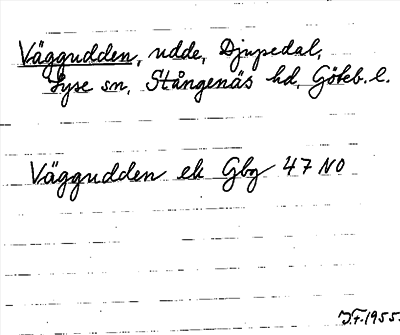 Väggudden, udde, Djupedal,
Lyse sn, Stångenäs hd, Göteb. l.
Väggudden ek Gbg 47 NO
J.F. 1955.